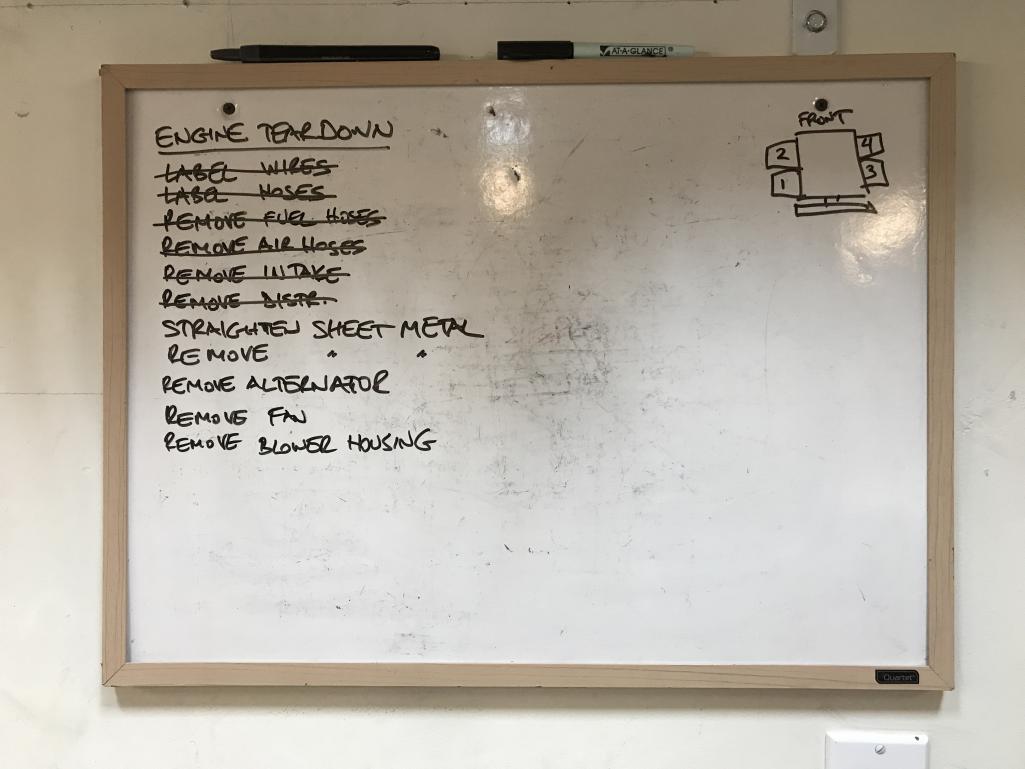 AT-A-GLANCE®
ENGINE TEARDOWN
LABEL WIRES
LABEL HOSES
REMOVE FUEL HOSES
REMOVE AIR HOSES
REMOVE INTAKE
REMOVE DISTR.
STRAIGHTEN SHEET METAL
REMOVE " "
REMOVE ALTERNATOR
REMOVE FAN
REMOVE BLOWER HOUSING
FRONT
2 4
1 3
Quartet